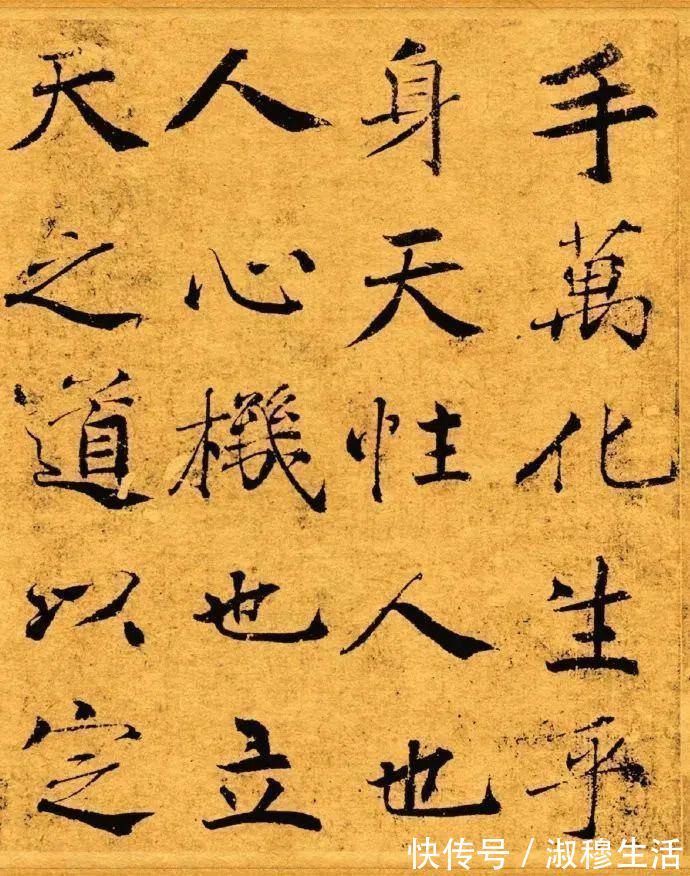 手萬化生乎
身天性人也
人心機也立
天之道以定
快传号/淑穆生活